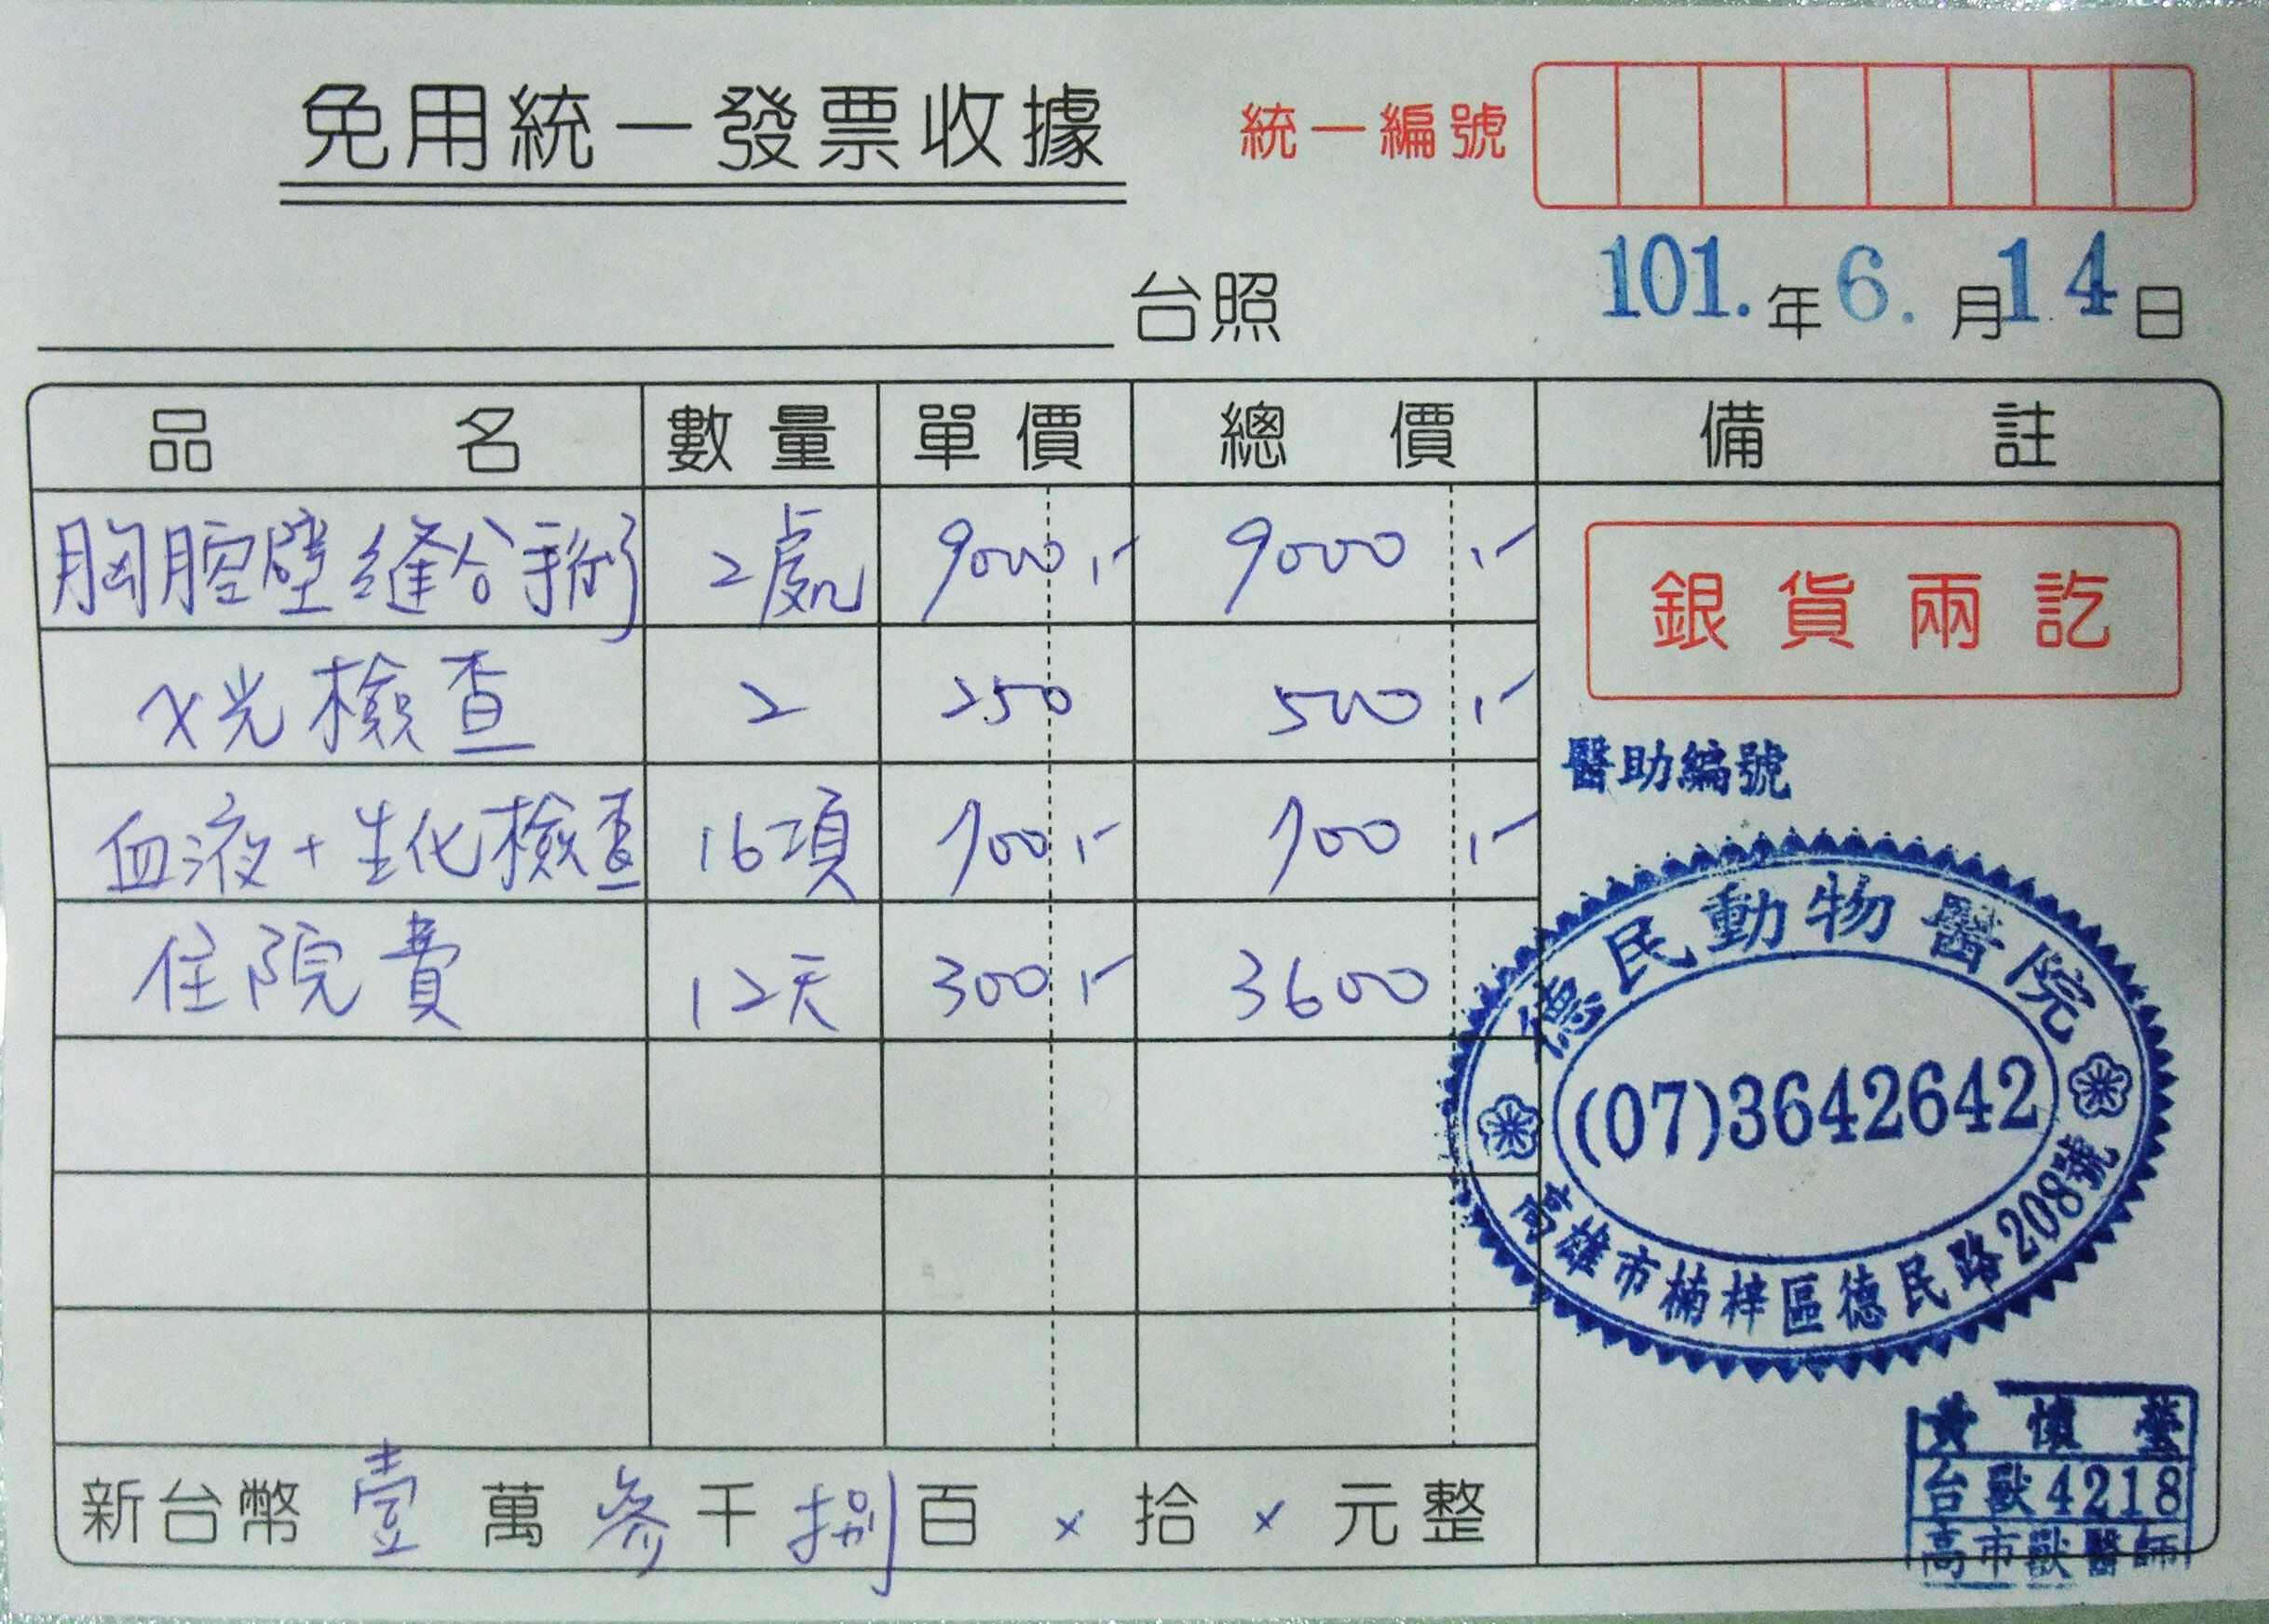 免用統一發票收據
統一編號
101. 年 6. 月 14 日
台照
品名 數量 單價 總價 備註
胸腔壁縫合手術 2處 9000,- 9000,-
X光檢查 2 250 500,-
血液+生化檢查 16項 700,- 700,-
住院費 12天 300,- 3600
銀貨兩訖
醫助編號
德民動物醫院
(07)3642642
高雄市楠梓區德民路208號
新台幣 壹 萬 參 千 捌 百 x 拾 x 元整
黃懷瑩
台獸4218
高市獸醫師